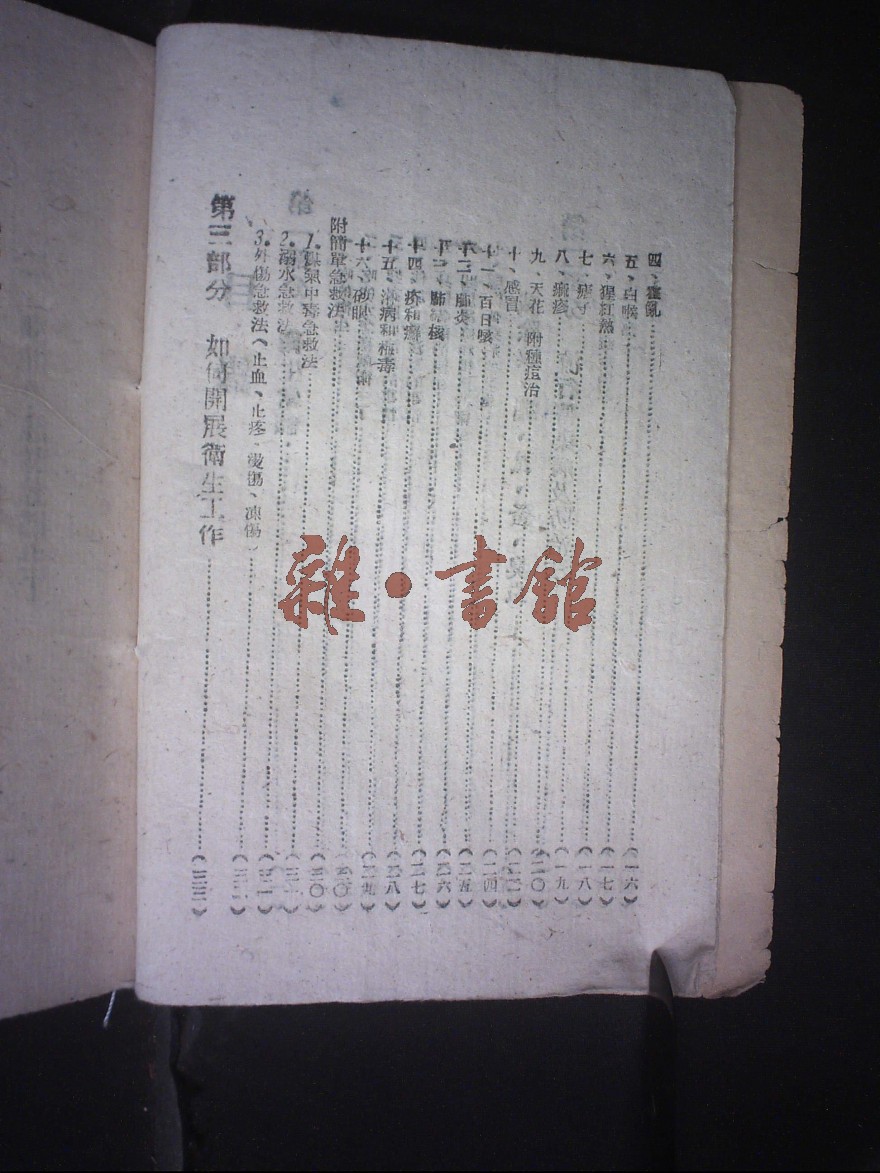 四、霍亂……（一六）
五、白喉……（一七）
六、猩紅熱……（一八）
七、瘧子……（一九）
八、麻疹……（二〇）
九、天花 附種痘治……（二二）
十、感冒……（二四）
十一、百日咳……（二五）
十二、肺炎……（二六）
十三、肺結核……（二七）
十四、疥和癬……（二八）
十五、淋病和梅毒……（二九）
十六、砂眼……（三〇）
附簡單急救法……（三〇）
1.煤氣中毒急救法……（三一）
2.溺水急救法……（三一）
3.外傷急救法（止血、止疼、燙傷、凍傷）……（三二）
第三部分 如何開展衛生工作……（三三）
雜·書館